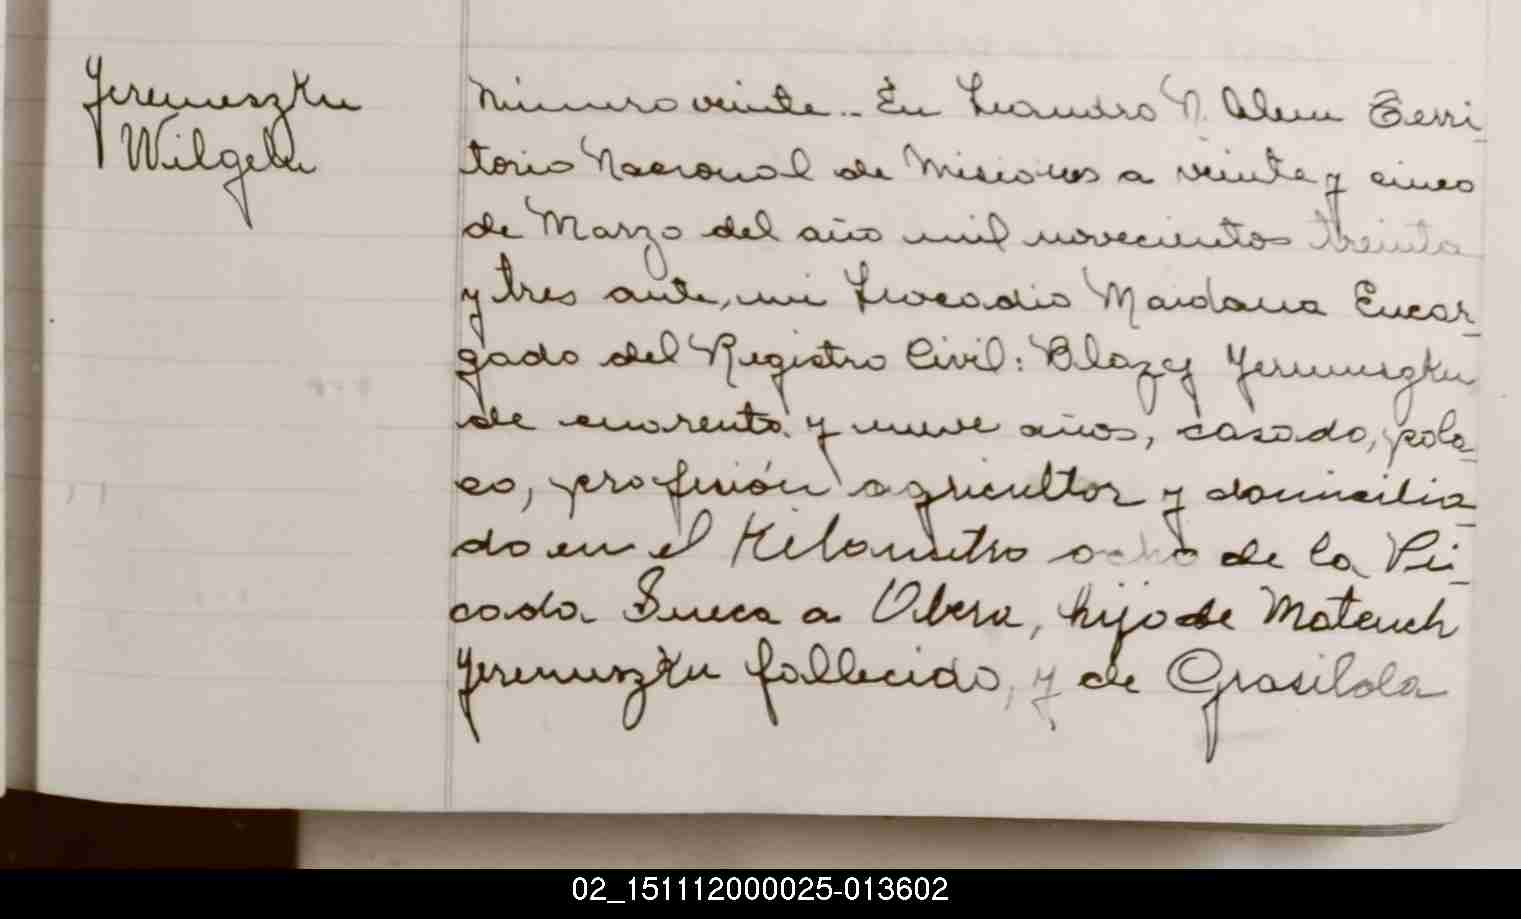 Jeremuszku
Wilgelu
Número veinte.. En Leandro N. Alem Terri-
torio Nacional de Misiones a veinte y cinco
de Marzo del año mil novecientos treinta
y tres ante, mi Leocadio Maidana Encar-
gado del Registro Civil: Blazej Jeremuszku
de cuarenta y nueve años, casado, pola-
co, profisión agricultor y domicilia-
do en el Kilometro ocho de la Pi-
cada Sueca a Obera, hijo de Mateuch
Jeremuszku fallecido, y de Grasilda
02_151112000025-013602